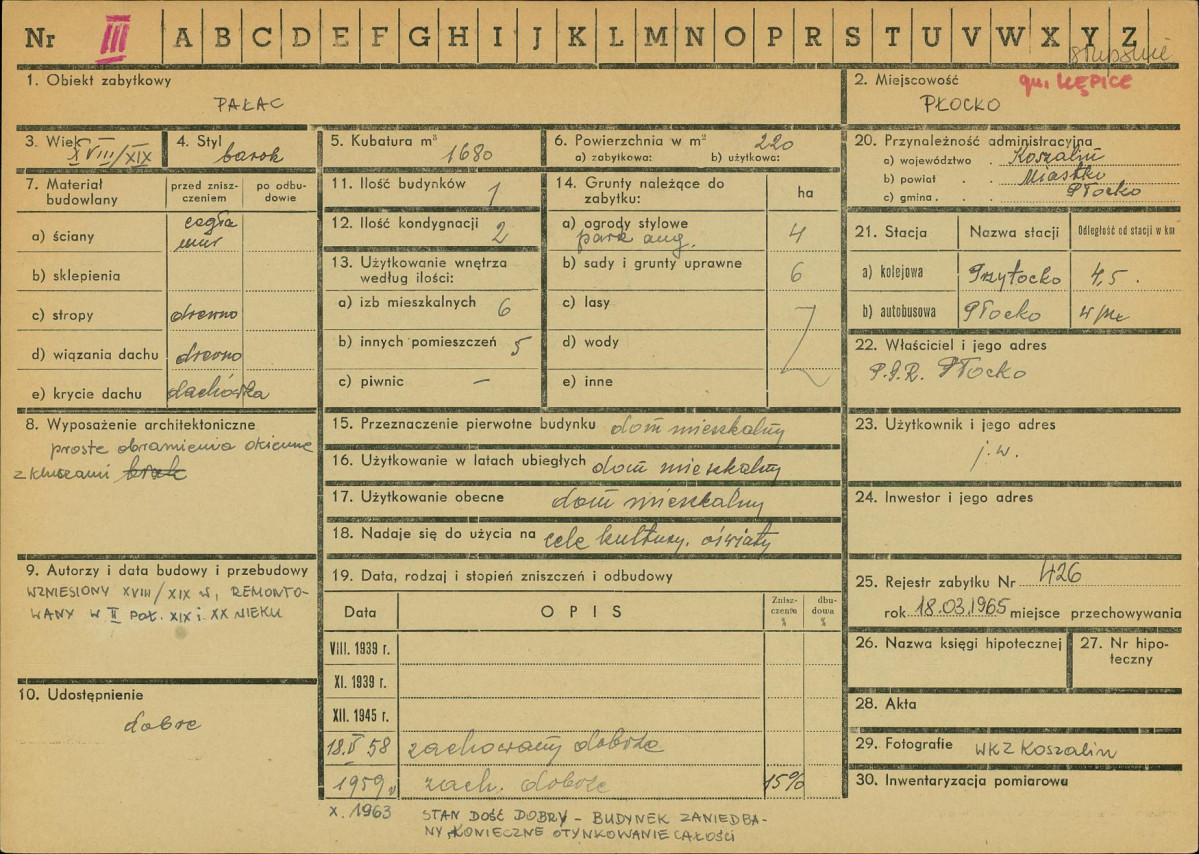 Nr III A B C D E F G H I J K L M N O P R S T U V W X Y Z
słupskie
1. Obiekt zabytkowy
PAŁAC
2. Miejscowość
gm. KĘPICE
PŁOCKO
3. Wiek
XVIII/XIX
4. Styl
barok
5. Kubatura m³
1680
6. Powierzchnia w m²
220
a) zabytkowa: b) użytkowa:
7. Materiał budowlany
przed znisz-
czeniem
po odbu-
dowie
a) ściany
cegła
mur
b) sklepienia
c) stropy drewno
d) wiązania dachu drewno
e) krycie dachu dachówka
8. Wyposażenie architektoniczne
proste obramienia okienne
z kluczami
9. Autorzy i data budowy i przebudowy
WZNIESIONY XVIII/XIX W, REMONTO-
WANY W II POŁ. XIX i XX WIEKU
10. Udostępnienie
dobre
11. Ilość budynków 1
12. Ilość kondygnacji 2
13. Użytkowanie wnętrza
według ilości:
a) izb mieszkalnych 6
b) innych pomieszczeń 5
c) piwnic –
14. Grunty należące do
zabytku:
ha
a) ogrody stylowe
park ang. 4
b) sady i grunty uprawne 6
c) lasy
d) wody
e) inne
15. Przeznaczenie pierwotne budynku dom mieszkalny
16. Użytkowanie w latach ubiegłych dom mieszkalny
17. Użytkowanie obecne dom mieszkalny
18. Nadaje się do użycia na cele kultury, oświaty
19. Data, rodzaj i stopień zniszczeń i odbudowy
Data
OPIS
Znisz-
czenie
%
dbu-
dowa
%
VIII. 1939 r.
XI. 1939 r.
XII. 1945 r.
18.V 58 zachowany dobrze
1959 zach. dobrze 15%
X. 1963 STAN DOŚĆ DOBRY – BUDYNEK ZANIEDBA-
NY, KONIECZNE OTYNKOWANIE CAŁOŚCI
20. Przynależność administracyjna
a) województwo Koszalin
b) powiat Miastko
c) gmina Płocko
21. Stacja
Nazwa stacji
Odległość od stacji w km
a) kolejowa Przytocko 4,5.
b) autobusowa Płocko w/m
22. Właściciel i jego adres
P.G.R. Płocko
23. Użytkownik i jego adres
j.w.
24. Inwestor i jego adres
25. Rejestr zabytku Nr 426
rok 18.03.1965 miejsce przechowywania
26. Nazwa księgi hipotecznej
27. Nr hipo-
teczny
28. Akta
29. Fotografie WKZ Koszalin
30. Inwentaryzacja pomiarowa